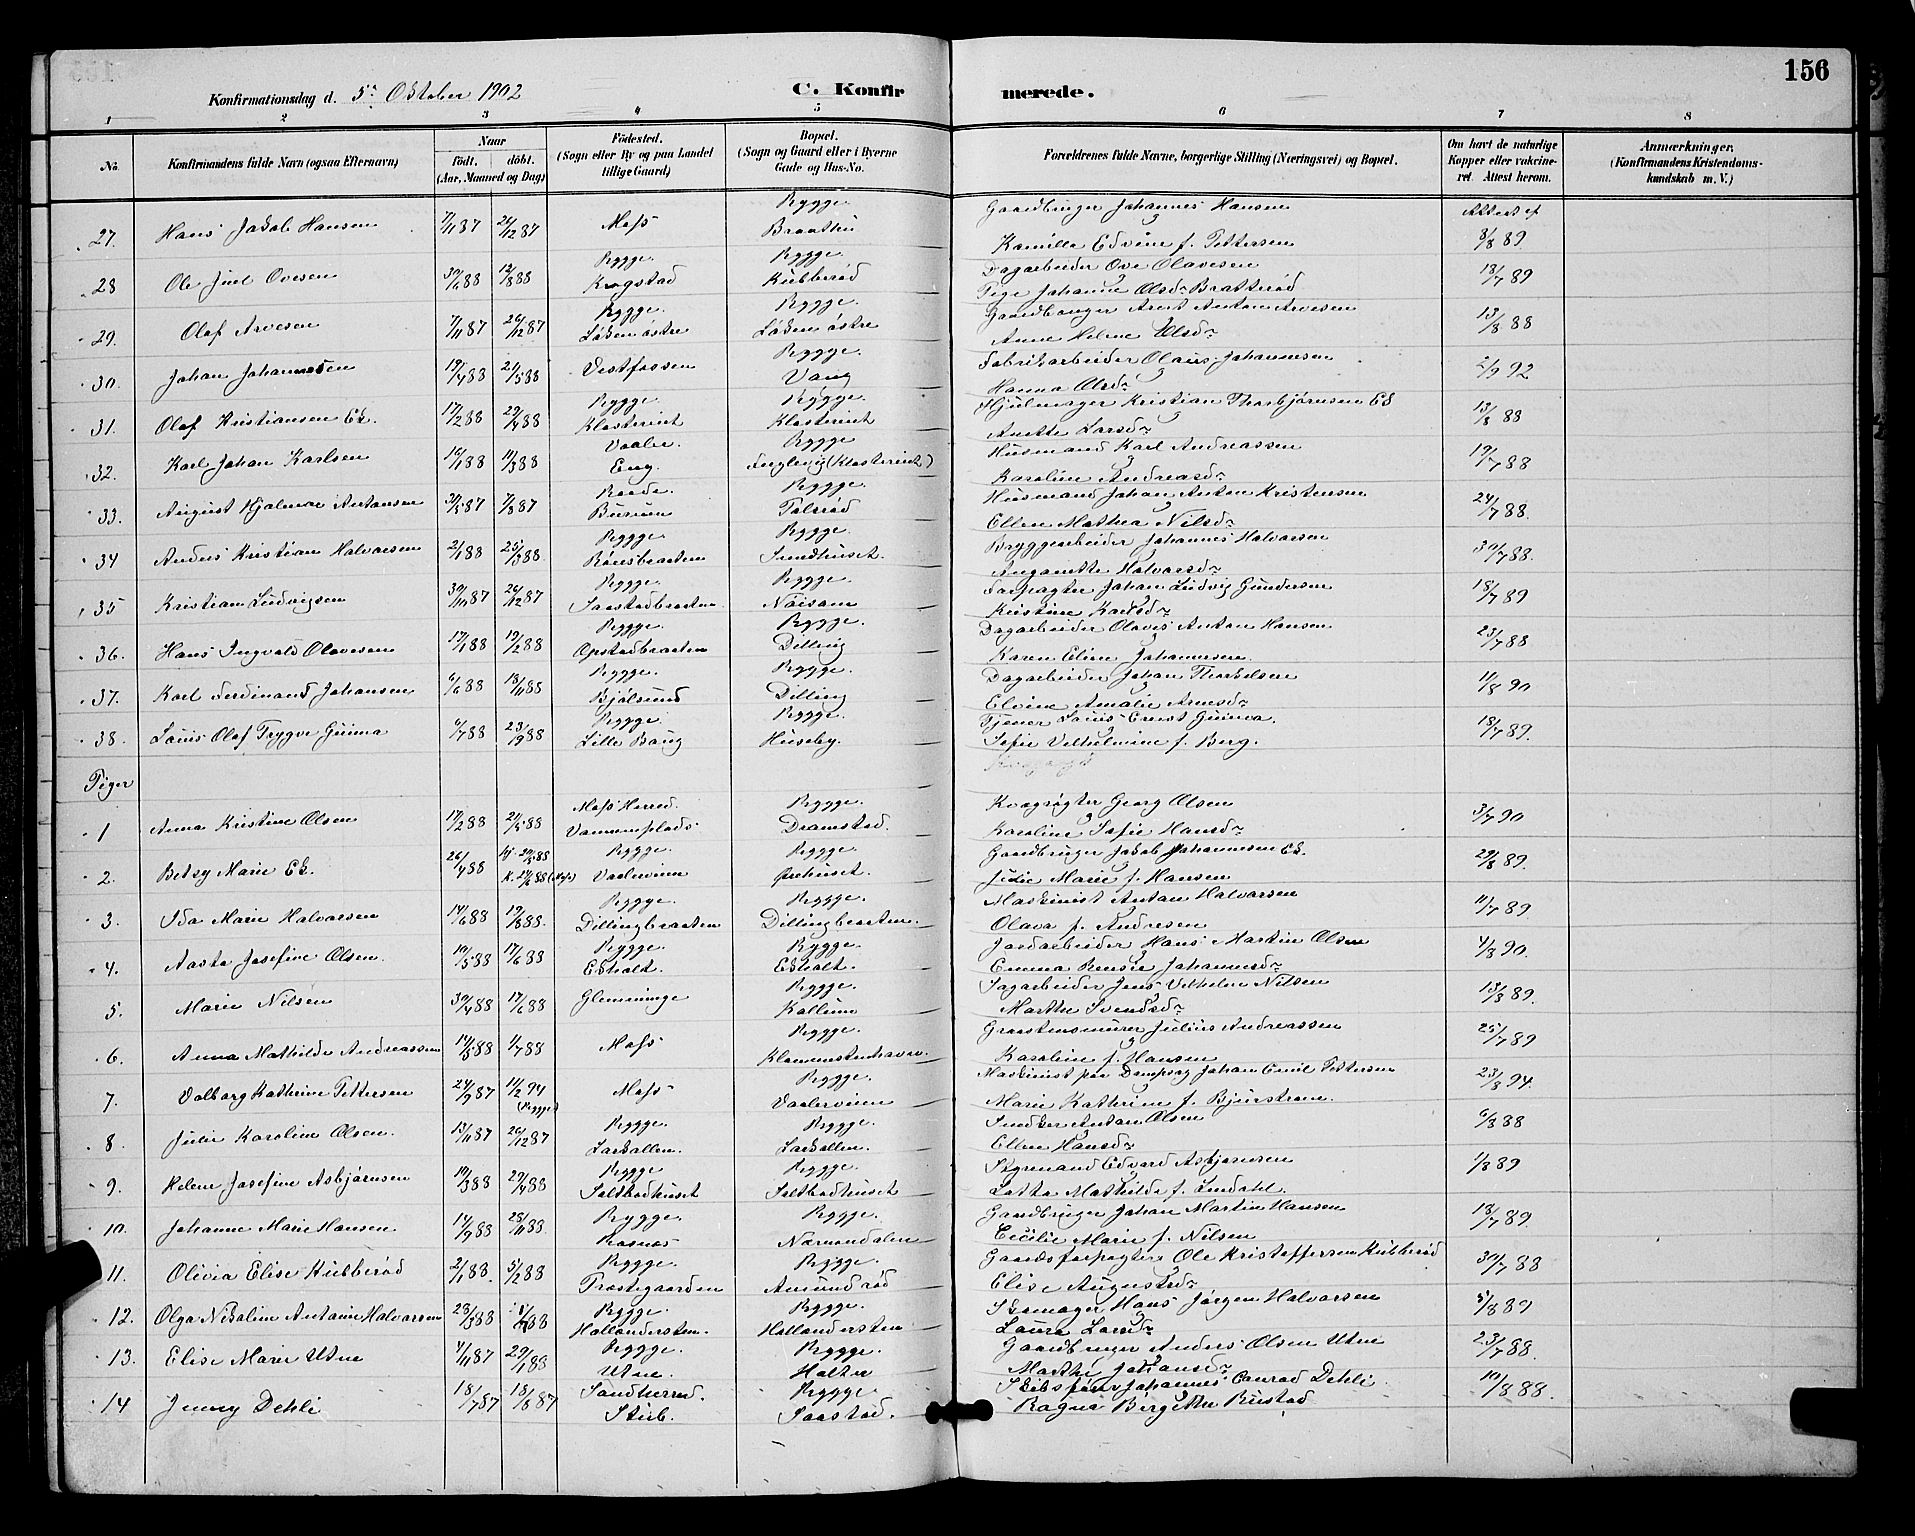 156
Konfirmationsdag d. 5te Oktober 1902 C. Konfirmerede.
1 2 3 4 5 6 7 8
No. Konfirmandens fulde Navn (ogsaa Efternavn) Naar födt. döbt. (Aar, Maaned og Dag) Födested. (Sogn eller By og paa Landet tillige Gaard) Bopæl. (Sogn og Gaard eller i Byerne Gade og Hus-No. Forældrenes fulde Navne, borgerlige Stilling (Næringsvei) og Bopæl. Om havt de naturlige Kopper eller vakcineret. Attest herom. Anmærkninger, (Konfirmandens Kristendomskundskab m. V.)
27. Hans Jakob Hansen 7/11 87 26/12 87 Moss Rygge. Braathen Gaardbruger Johannes Hansen Attest af
Kamilla Edvine f. Pettersen 8/8 89
28 Ole Juel Ovesen 30/6 88 12/8 88 Rygge. Krogstad Rygge. Kubberød Dagarbeider Ove Olavesen 18/7 89
Pige Johanne Olsdr Bratterød
29. Olaf Arvesen 7/11 87 26/12 87 Rygge. Løken østre Rygge. Løken østre Gaardbruger Arent Anton Arvesen 13/8 88
Anne Helene Olsdr
30. Johan Johannesen 19/4 88 21/5 88 Vestfossen Rygge. Vang Fabrikarbeider Olaus Johannesen 2/9 92
Hanna Olsdr
31. Olaf Kristiansen Ek. 17/2 88 29/4 88 Rygge. Klosteriet Rygge. Klosteriet Hjulmager Kristian Thorbjørnsen Ek 13/8 88
Anette Larsdr
32. Karl Johan Karlsen 16/1 88 11/3 88 Vaaler. Eng. Rygge. Fuglevig (Klosteriet) Husmand Karl Andreassen 19/7 88
Karoline Andreasdr
33. August Hjalmar Antonsen 30/5 87 7/8 87 Raade. Rygge. Husmand Johan Anton Kristensen 24/7 88.
Ellen Mathea Nilsdr
34 Anders Kristian Halvorsen 2/1 88 25/3 88 Rygge. Rygge. Sundhuset. Bryggearbeider Johannes Halvorsen 30/7 88
Halvorsdr
35 Kristian Ludvigsen 30/11 87 26/12 87 Rygge. Saastadbraaten Rygge. Forpagter Johan Ludvig Gundersen 18/7 89
Kristine Karlsdr
36. Hans Ingvald Olavesen 17/1 88 19/2 88 Rygge. Opstadbraaten Rygge. Dilling Dagarbeider Olaves Anton Hansen 23/7 88
Karen Eline Johannesen.
37. Karl Ferdinand Johansen 6/6 88 18/11 88 Rygge. Bjølsund Rygge. Dilling Dagarbeider Johan Thorkelsen 11/8 90
Elvine Amalie Arnesdr
38. Louis Olaf Trygve Guina 6/7 88 23/9 88 Rygge. Lille Baug Rygge. Huseby. Tjener Louis Ernst Guinea. 18/7 89.
Sofie Vilhelmine f. Berg.
Piger
1 Anna Kristine Olsen 17/2 88 21/5 88 Moss Herred. Vannemplads Rygge. Dramstad. Kvægrøgter Georg Olsen 3/7 90
Karoline Sofie Hansdr
2. Betsy Marie Ek. 26/4 88 Hj. 20/5 88 K. 24/6 88 (Moss) Rygge. Vaalerveien Rygge. Gaardbruger Jakob Johannesen Ek. 29/8 89.
Julie Marie f. Hansen
3. Ida Marie Halvorsen 14/6 88 19/8 88. Rygge. Dillingbraaten Rygge. Dillingbraaten. Maskinist Anton Halvorsen 11/7 89.
Olava f. Andresen
4. Aasta Josefine Olsen. 10/5 88 17/6 88 Rygge. Ekholt. Rygge. Ekholt. Jordarbeider Hans Martin Olsen 4/8 90.
Emma Johannesdr
5. Marie Nilsen 30/4 88 17/6 88 Glemminge Rygge. Kallum Sagarbeider Jens Vilhelm Nilsen 13/8 89.
Marthe Svendsdr
6. Anna Mathilde Andreassen 14/5 88 1/7 88 Moss Rygge. Graastensmurer Julius Andreassen 25/7 89
Karoline f. Hansen
7. Valborg Kathrine Pettersen 24/9 87 11/2 94 (Rygge) Moss Rygge. Vaalerveien Maskinist paa Dampsag Johan Emil Pettersen 23/8 94.
Marie Kathrine f. Bjurstrøm.
8. Julie Karoline Olsen. 13/11 87 26/12 87 Rygge. Larkollen. Rygge. Larkollen. Snedker Anton Olsen 6/8 88
Ellen Hansdr
9. Helene Josefine Asbjørnsen 10/3 88 29/4 88 Rygge Saltbodhuset Rygge. Saltbodhuset Styrmand Edvard Asbjørnsen 1/8 89
Lotta Mathilde f. Lindahl.
10. Johanne Marie Hansen 14/9 88 28/11 88 Rygge. Rosnæs Rygge. Gaardbruger Johan Martin Hansen 18/7 89.
Cecilie Marie f. Nilsen
11. Olivia Elise Kubberød 2/1 88. 5/2 88 Rygge. Præstegaarden Rygge. Amundrød Gaardsforpagter Ole Kristoffersen Kubberød 30/7 88
Elise Augustsdr
12. Olga Nikoline Antonie Halvorsen 28/3 88 88 Rygge. Hollendersten. Rygge. Hollendersten Skomager Hans Jørgen Halvorsen 5/8 89
Laura Larsdr
13. Elise Marie Utne 4/11 87 29/1 88 Rygge. Utne. Rygge. Holten Gaardbruger Anders Olsen Utne 23/7 88.
Marthe Johansdr
14 Jenny Dehli 18/7 87 18/8 87 Sandherred. Stub. Rygge Saastad. Skibsfører Johannes Conrad Dehli. 10/8 88.
Ragna Birgitte Rustad